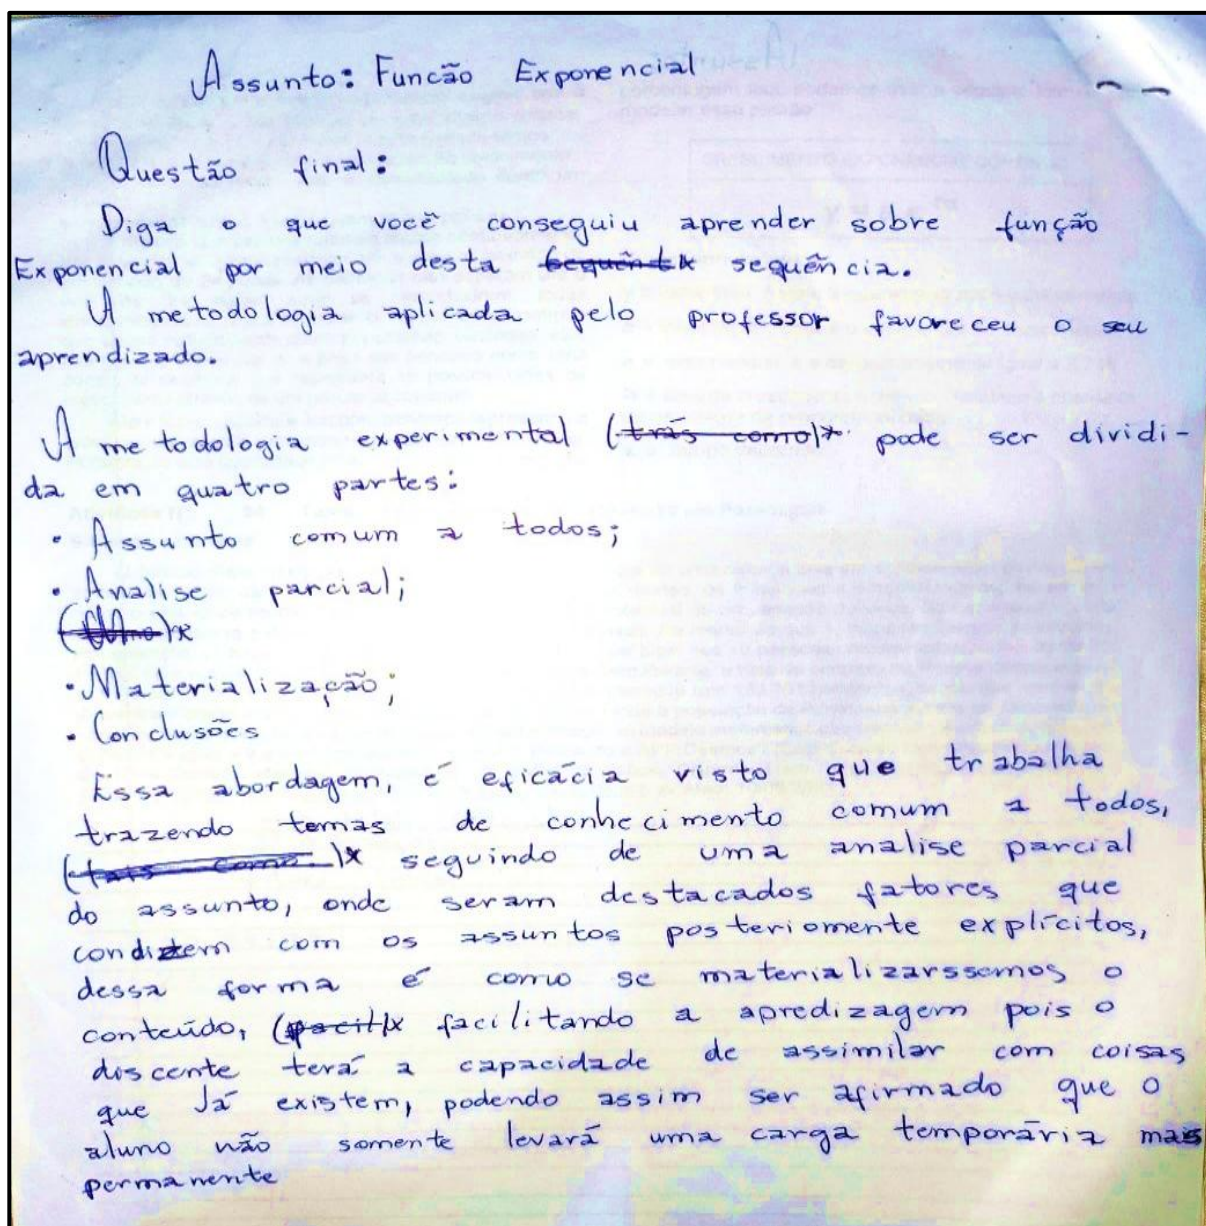 Assunto: Funcão Exponencial
Questão final:
Diga o que você conseguiu aprender sobre função
Exponencial por meio desta sequência.
A metodologia aplicada pelo professor favoreceu o seu
aprendizado.
A metodologia experimental (trás como)x pode ser dividi-
da em quatro partes:
• Assunto comum a todos;
• Analise parcial;
• Materialização;
• Conclusões
Essa abordagem, é eficácia visto que trabalha
trazendo temas de conhecimento comum a todos,
(tais como)x seguindo de uma analise parcial
do assunto, onde seram destacados fatores que
condizem com os assuntos posteriomente explícitos,
dessa forma é como se materializarssemos o
conteúdo, (facil)x facilitando a apredizagem pois o
discente terá a capacidade de assimilar com coisas
que Já existem, podendo assim ser afirmado que o
aluno não somente levará uma carga temporária mas
permanente